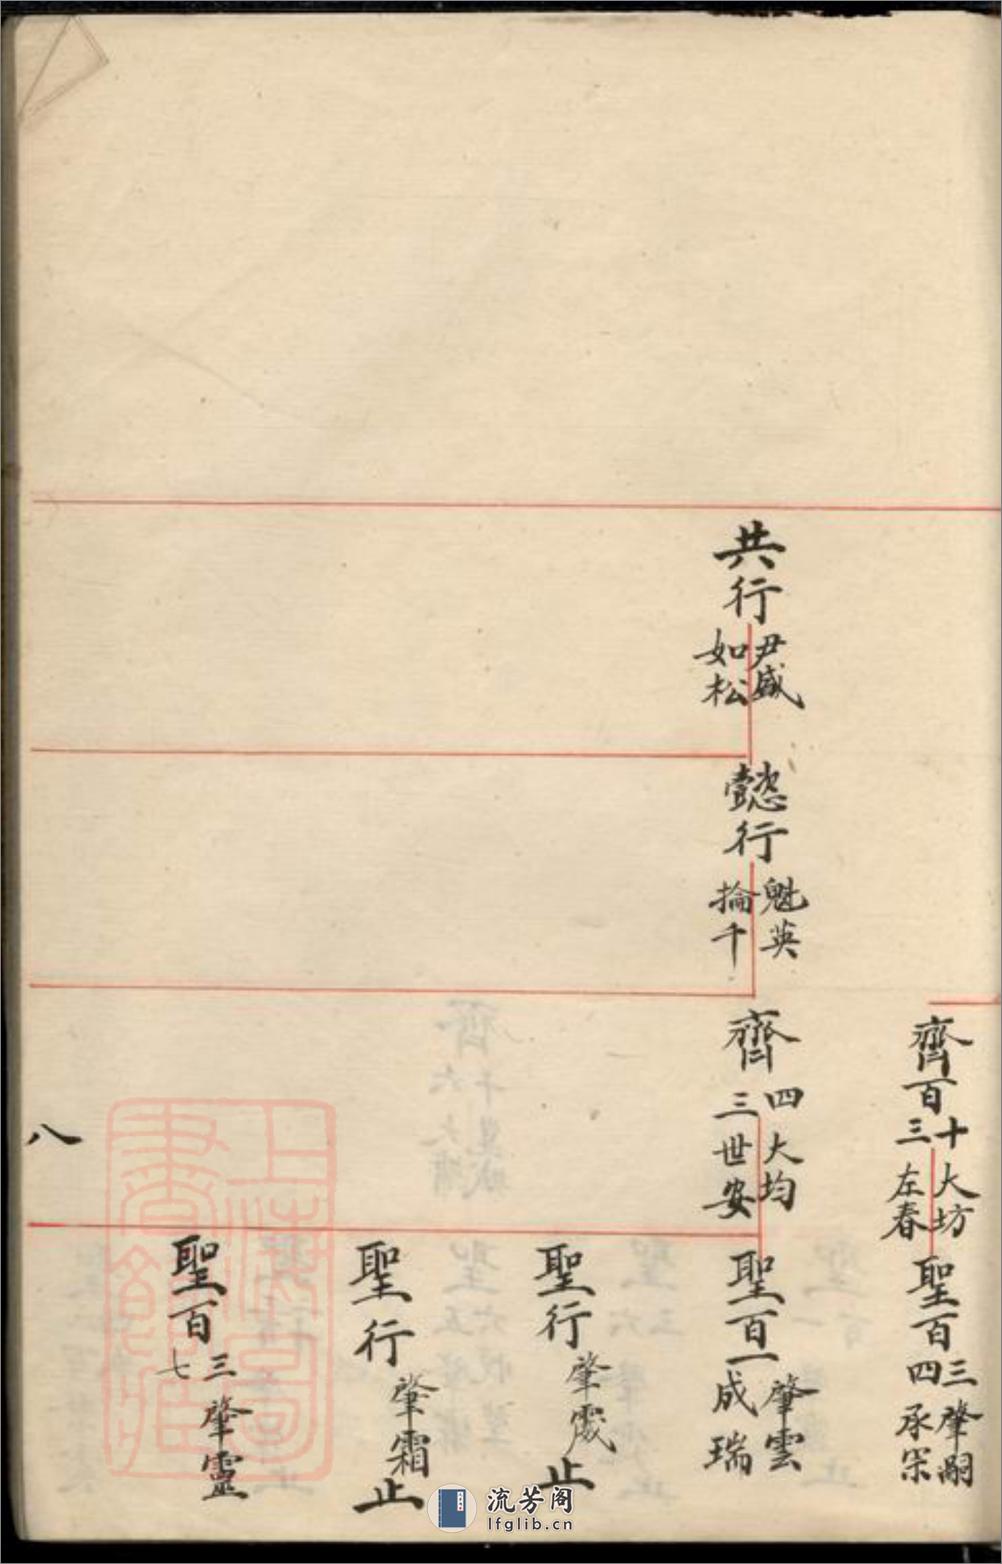 齊百三十大坊左春
聖百四三肇嗣承宗
共行尹盛如松
懿行魁英掄千
齊四大均三世安
聖百一肇雲成瑞
聖行肇處止
聖行肇霜止
聖百三七肇靈
八
上海圖書館藏
流芳阁
lfglib.cn